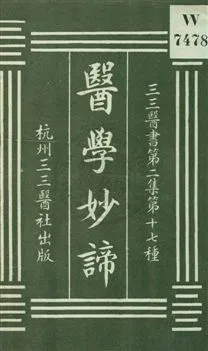 W
7478
三三醫書第二集第十七種
醫學妙諦
杭州三三醫社出版